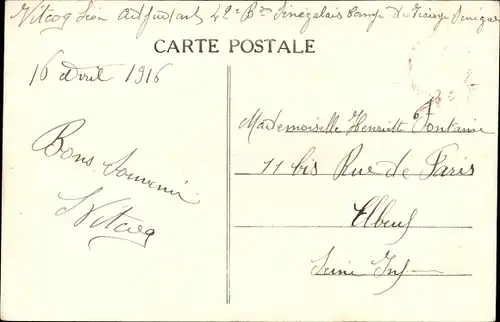 Adjudant 42e Bon Sénégalais Camp de Sénégal
CARTE POSTALE
16 Avril 1916
Bons Souvenir
Mademoiselle Henriette Fontaine
11 bis Rue de Paris
Elbeuf
Seine Inf